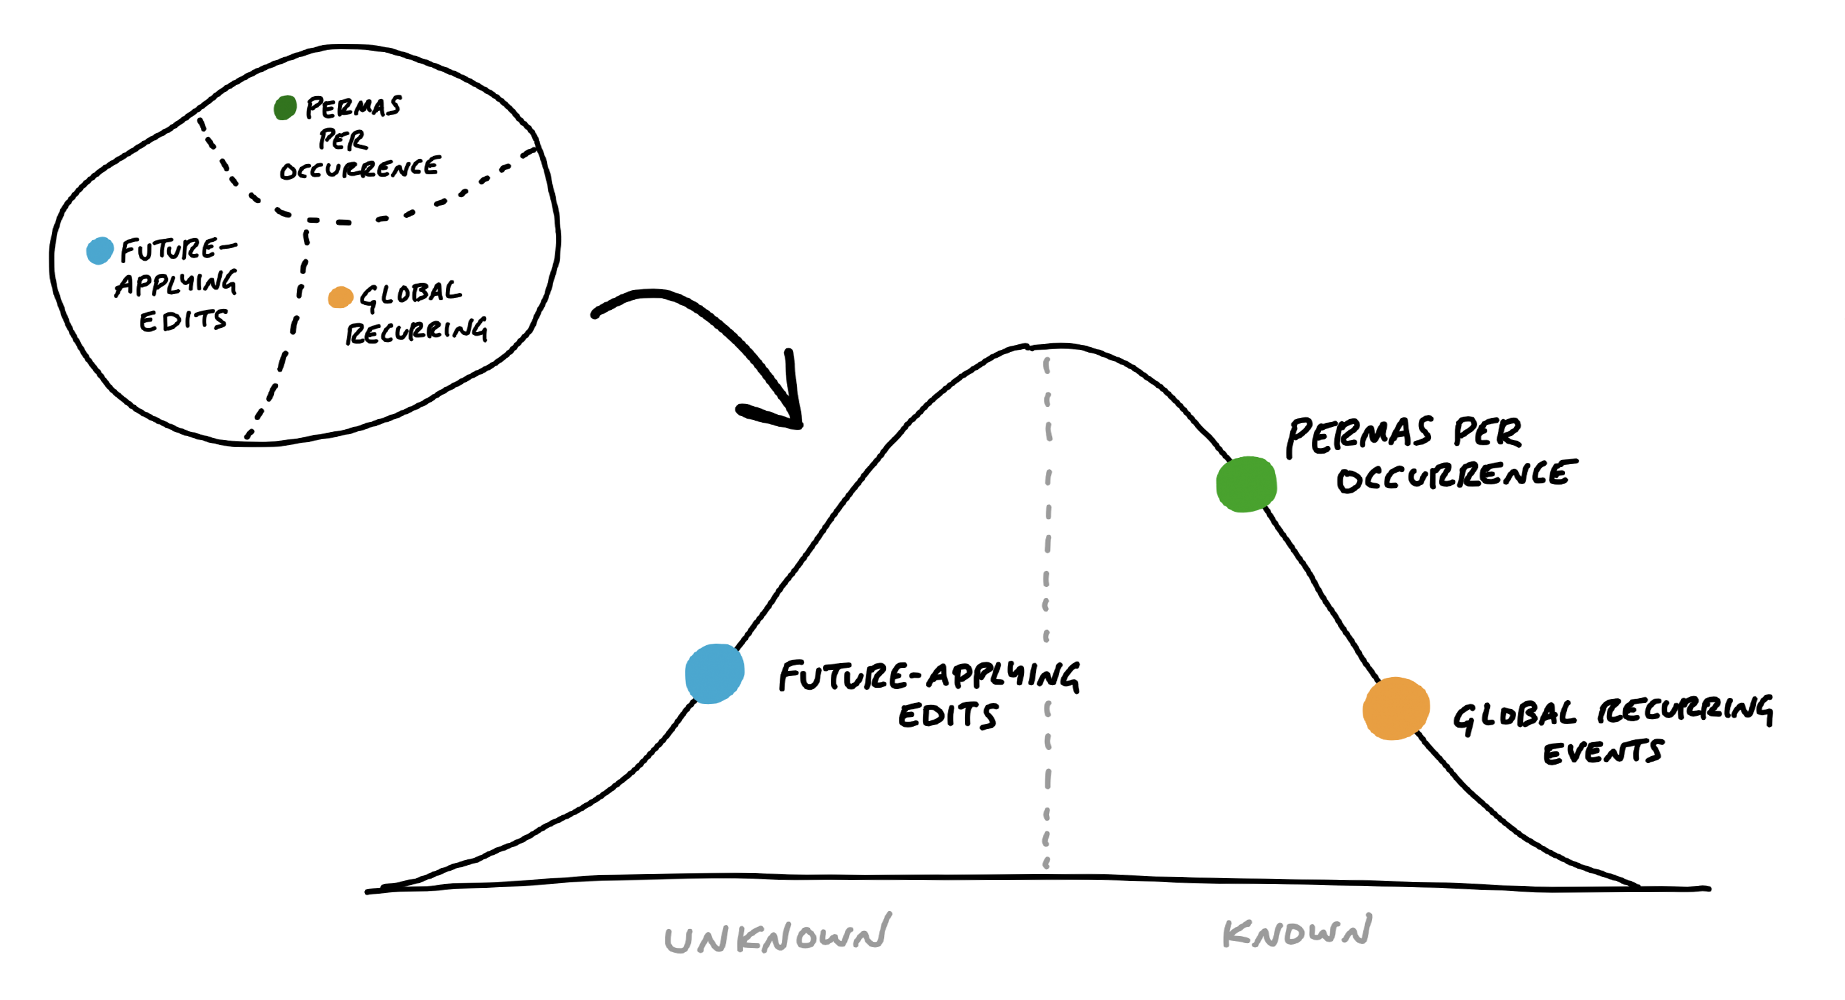 PERMAS
PER
OCCURRENCE
FUTURE-
APPLYING
EDITS
GLOBAL
RECURRING
PERMAS PER
OCCURRENCE
FUTURE-APPLYING
EDITS
GLOBAL RECURRING
EVENTS
UNKNOWN
KNOWN